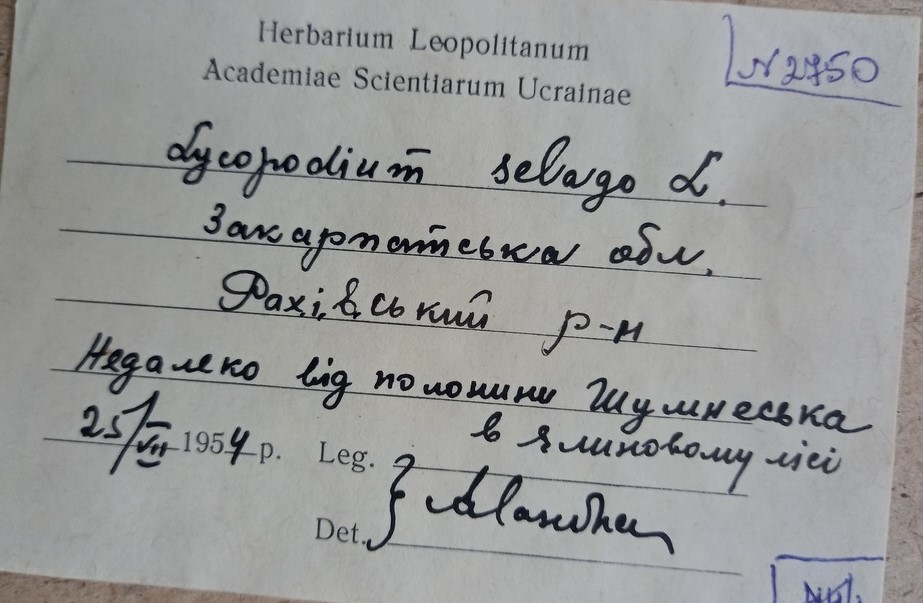 Herbarium Leopolitanum
Academiae Scientiarum Ucrainae
N 2750
Lycopodium selago L.
Закарпатська обл.
Рахівський р-н
Недалеко від полонини Шумнеська
в ялиновому лісі
25/VII 1954 р. Leg.
Det.